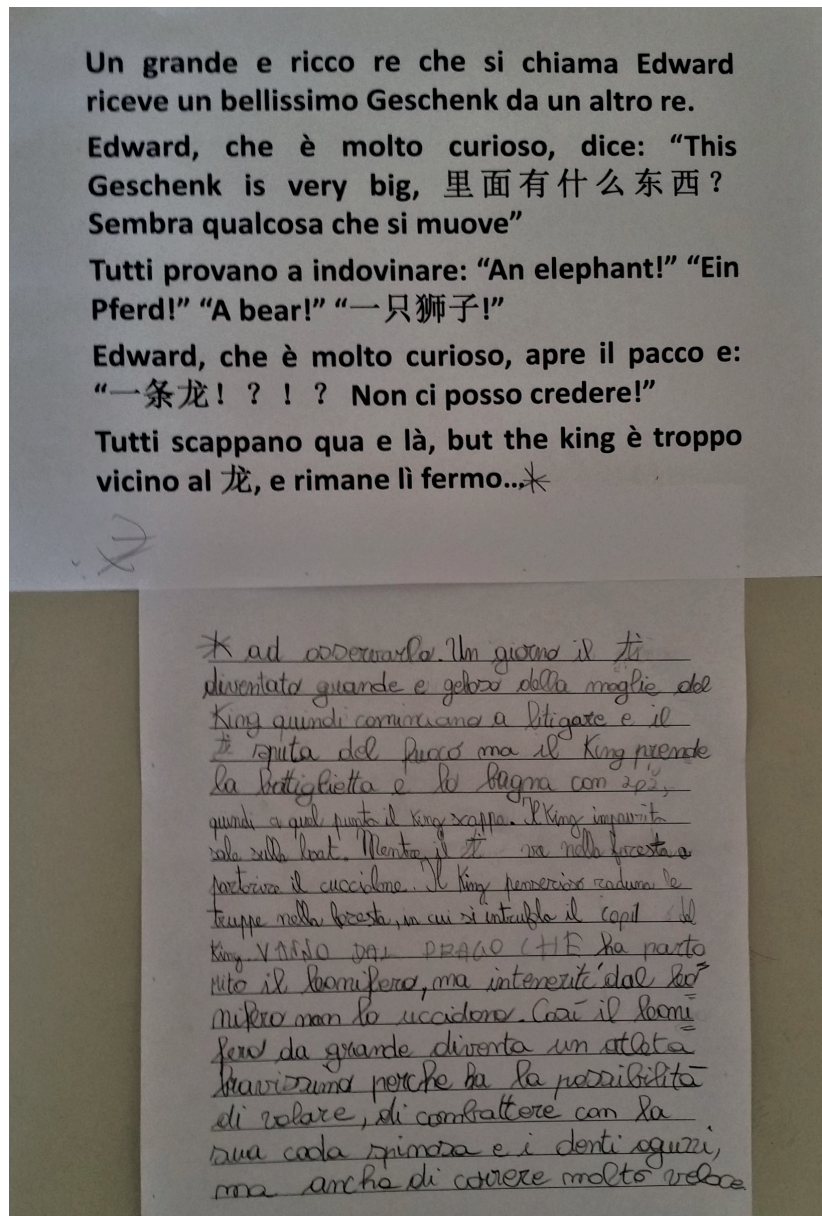 Un grande e ricco re che si chiama Edward
riceve un bellissimo Geschenk da un altro re.
Edward, che è molto curioso, dice: “This
Geschenk is very big, 里面有什么东西？
Sembra qualcosa che si muove”
Tutti provano a indovinare: “An elephant!” “Ein
Pferd!” “A bear!” “一只狮子!”
Edward, che è molto curioso, apre il pacco e:
“一条龙！？！？ Non ci posso credere!”
Tutti scappano qua e là, but the king è troppo
vicino al 龙, e rimane lì fermo...*
* ad osservarlo. Un giorno il 龙
diventato grande e geloso della moglie del
King quindi cominciano a litigare e il
龙 sputa del fuoco ma il King prende
la bottiglietta e lo bagna con
quindi a quel punto il King scappa. Il King impaurit
sale sulla boat. Mentre il 龙 va nella foresta a
partorire il cucciolme. Il King pensieroso raduna le
truppe nella foresta, in cui si intrufola il copil del
King. VANNO DAL DRAGO CHE ha parto
rito il
ma inteneriti dal
non lo uccidono. Così il
da grande diventa un atleta
bravissimo perche ha la possibilità
di volare, di combattere con la
sua coda spinosa e i denti aguzzi,
ma anche di correre molto veloce.